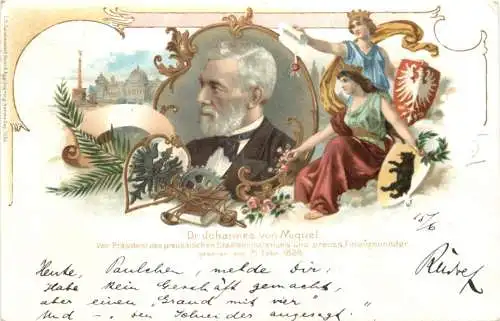 Dr. Johannes von Miquel
Vize-Präsident des preussischen Staatsministeriums und preuss. Finanzminister
geboren am 21. Febr. 1828.
15/6
Heute, Paulchen, melde Dir:
Habe kein Geschäft gemacht,
aber einen "Grand mit vier"
Und — den Schneider angesagt!